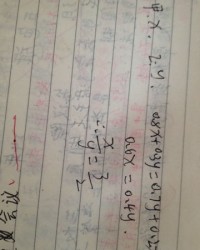 甲.X. 乙.y. 0.8X+0.3y=0.7y+0.2X
0.6X=0.4y.
∴ X/y = 2/3
会议、